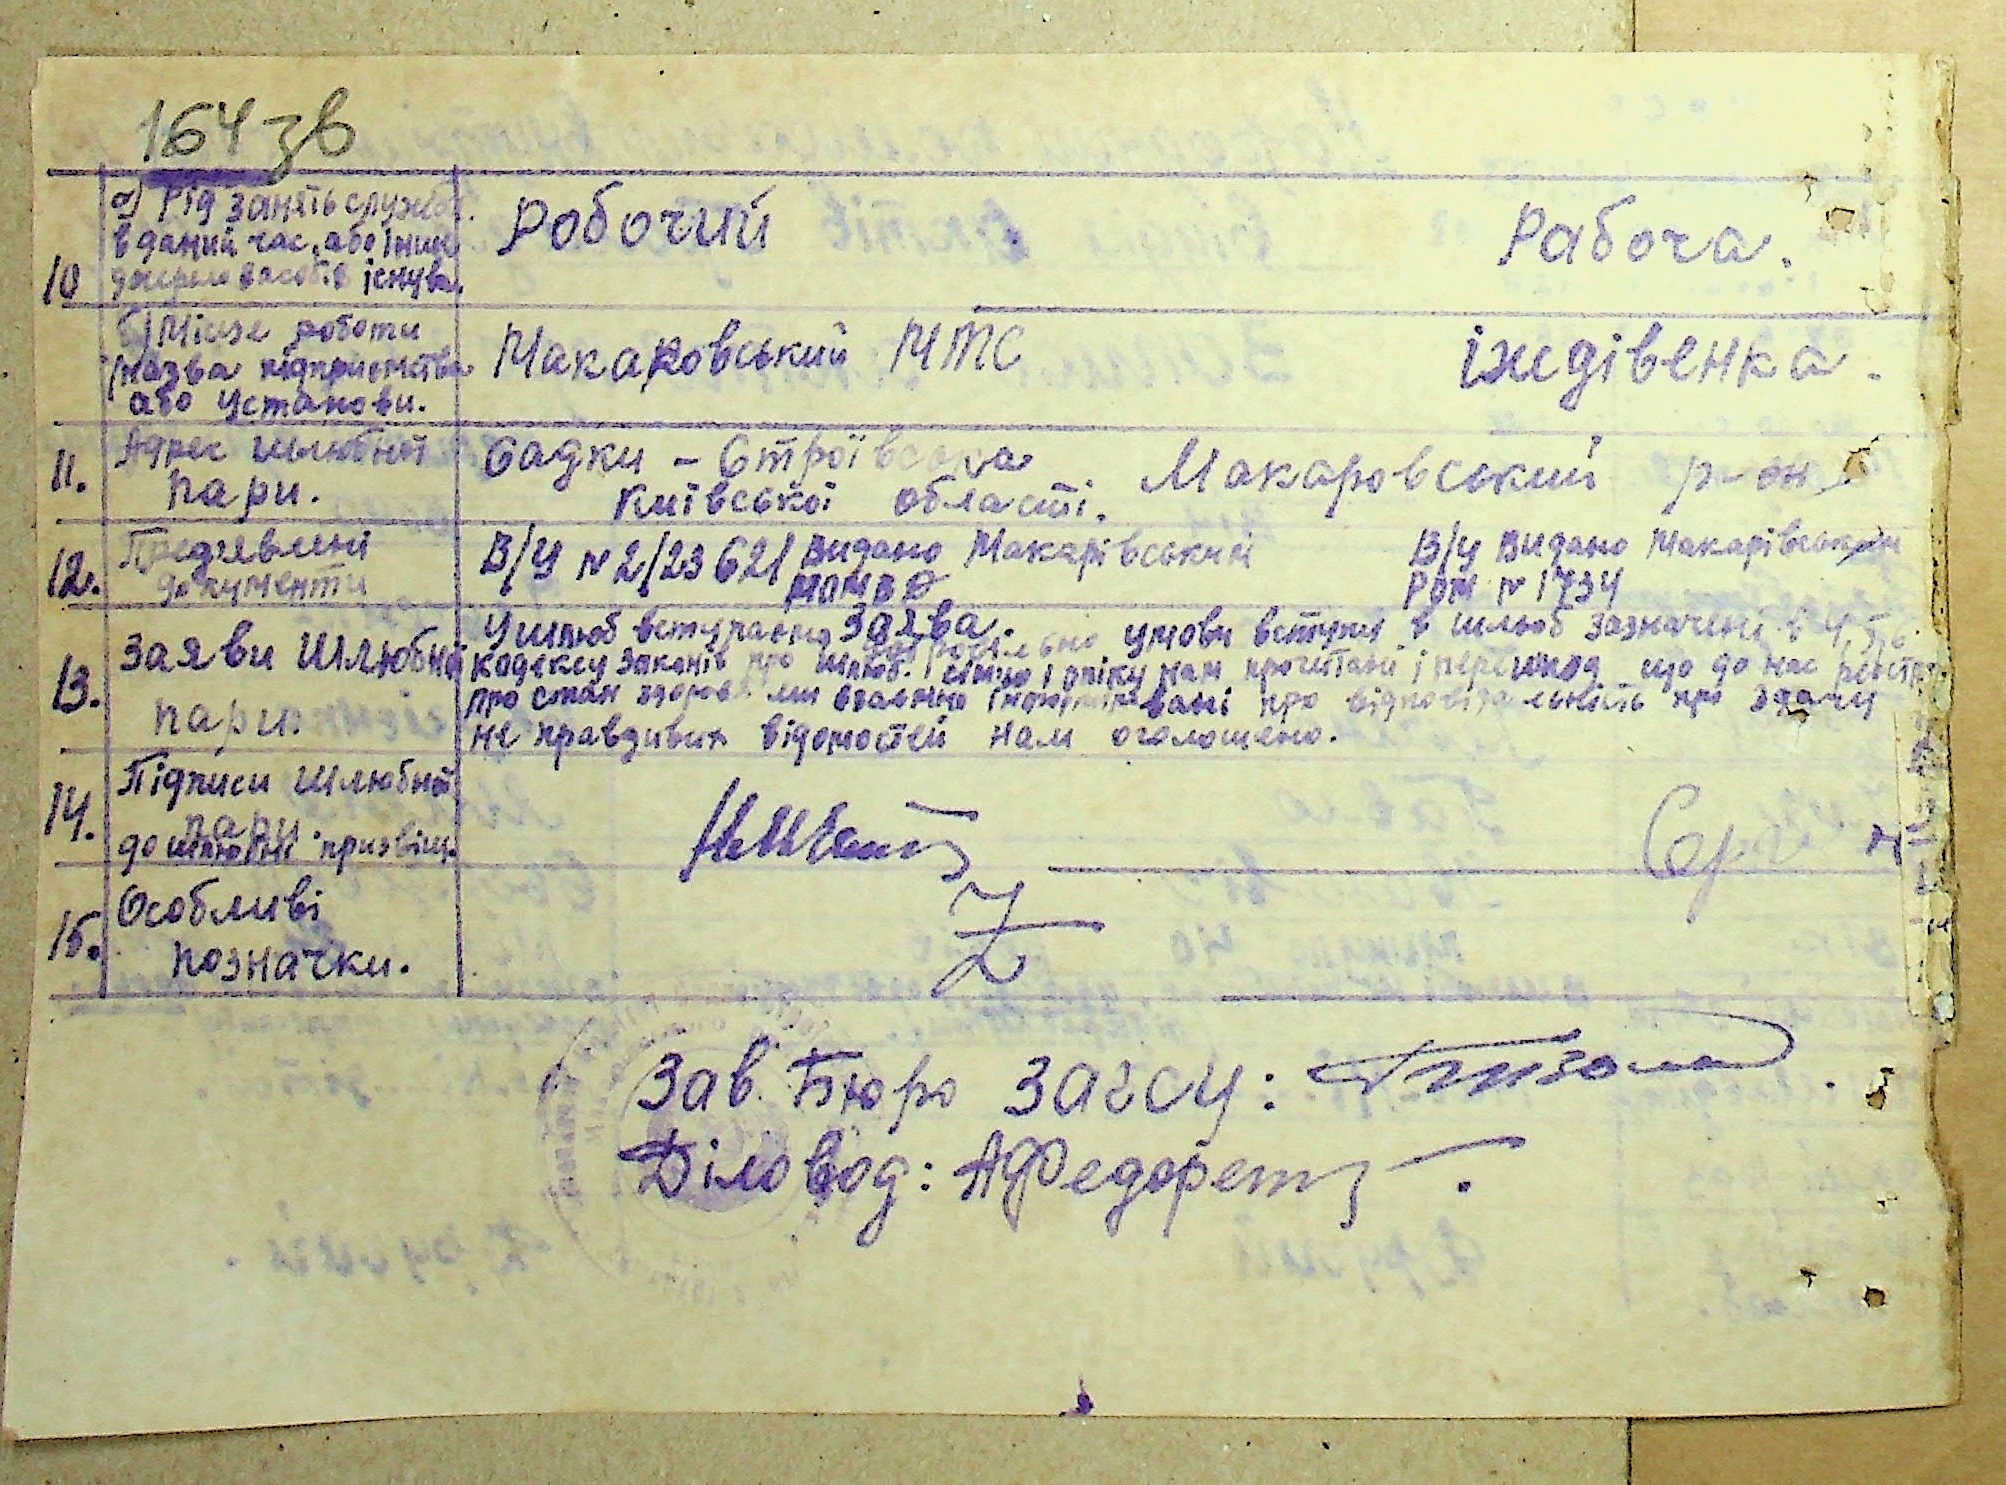 164 зв
а) Рід занять служб.
в даний час, або інше
джерело засобів існува.
10
Робочий
Рабоча.
б) Місце роботи
назва підприємства
або установи.
Макаровський МТС
іждівенка.
11.
Адрес шлюбної
пари.
Садки – Строївська Макаровський р-он
Київської області.
12.
Предявлені
документи
В/у № 2/23621 Видано Макарівський
В/у Видано Макарівським
РОМ № 1734
13.
Заяви шлюбної
пари.
Заява.
У шлюб вступаємо умови вступу в шлюб зазначені в
кодексу законів про шлюб. сімю і опіку нам прочитані і що до нас
про стан здоровя ми взаємно інформіровані про відповідальність про здачу
не правдивих відомостей нам оголошено.
14.
Підписи шлюбної
пари
до шлюбні призвіщ.
15.
Особливі
позначки.
Z
Зав. Бюро ЗАГСу:
Діловод: АФедорет